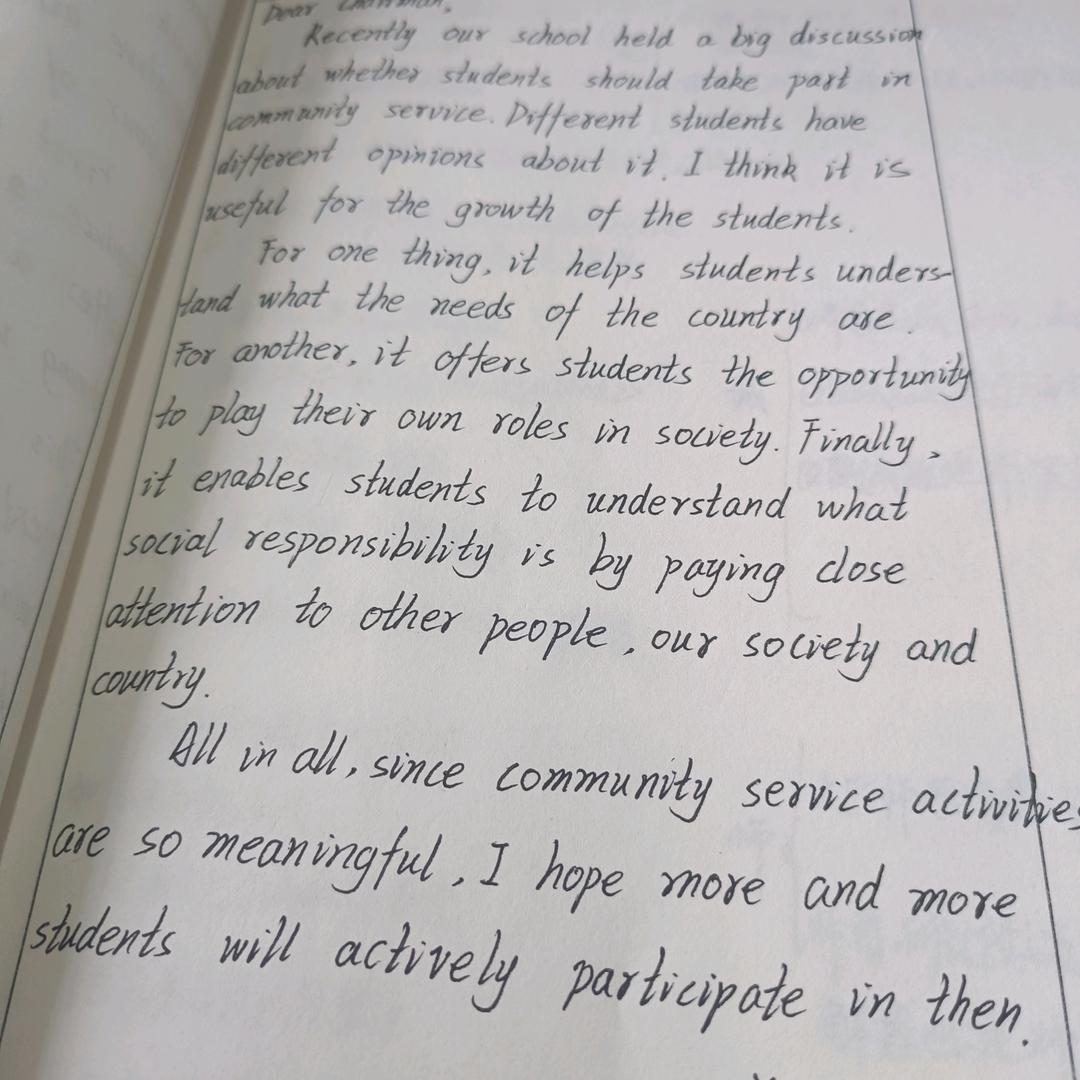 Dear Chairman,
Recently our school held a big discussion
about whether students should take part in
community service. Different students have
different opinions about it. I think it is
useful for the growth of the students.
For one thing, it helps students unders-
tand what the needs of the country are.
For another, it offers students the opportunity
to play their own roles in society. Finally,
it enables students to understand what
social responsibility is by paying close
attention to other people, our society and
country.
All in all, since community service activities
are so meaningful, I hope more and more
students will actively participate in then.